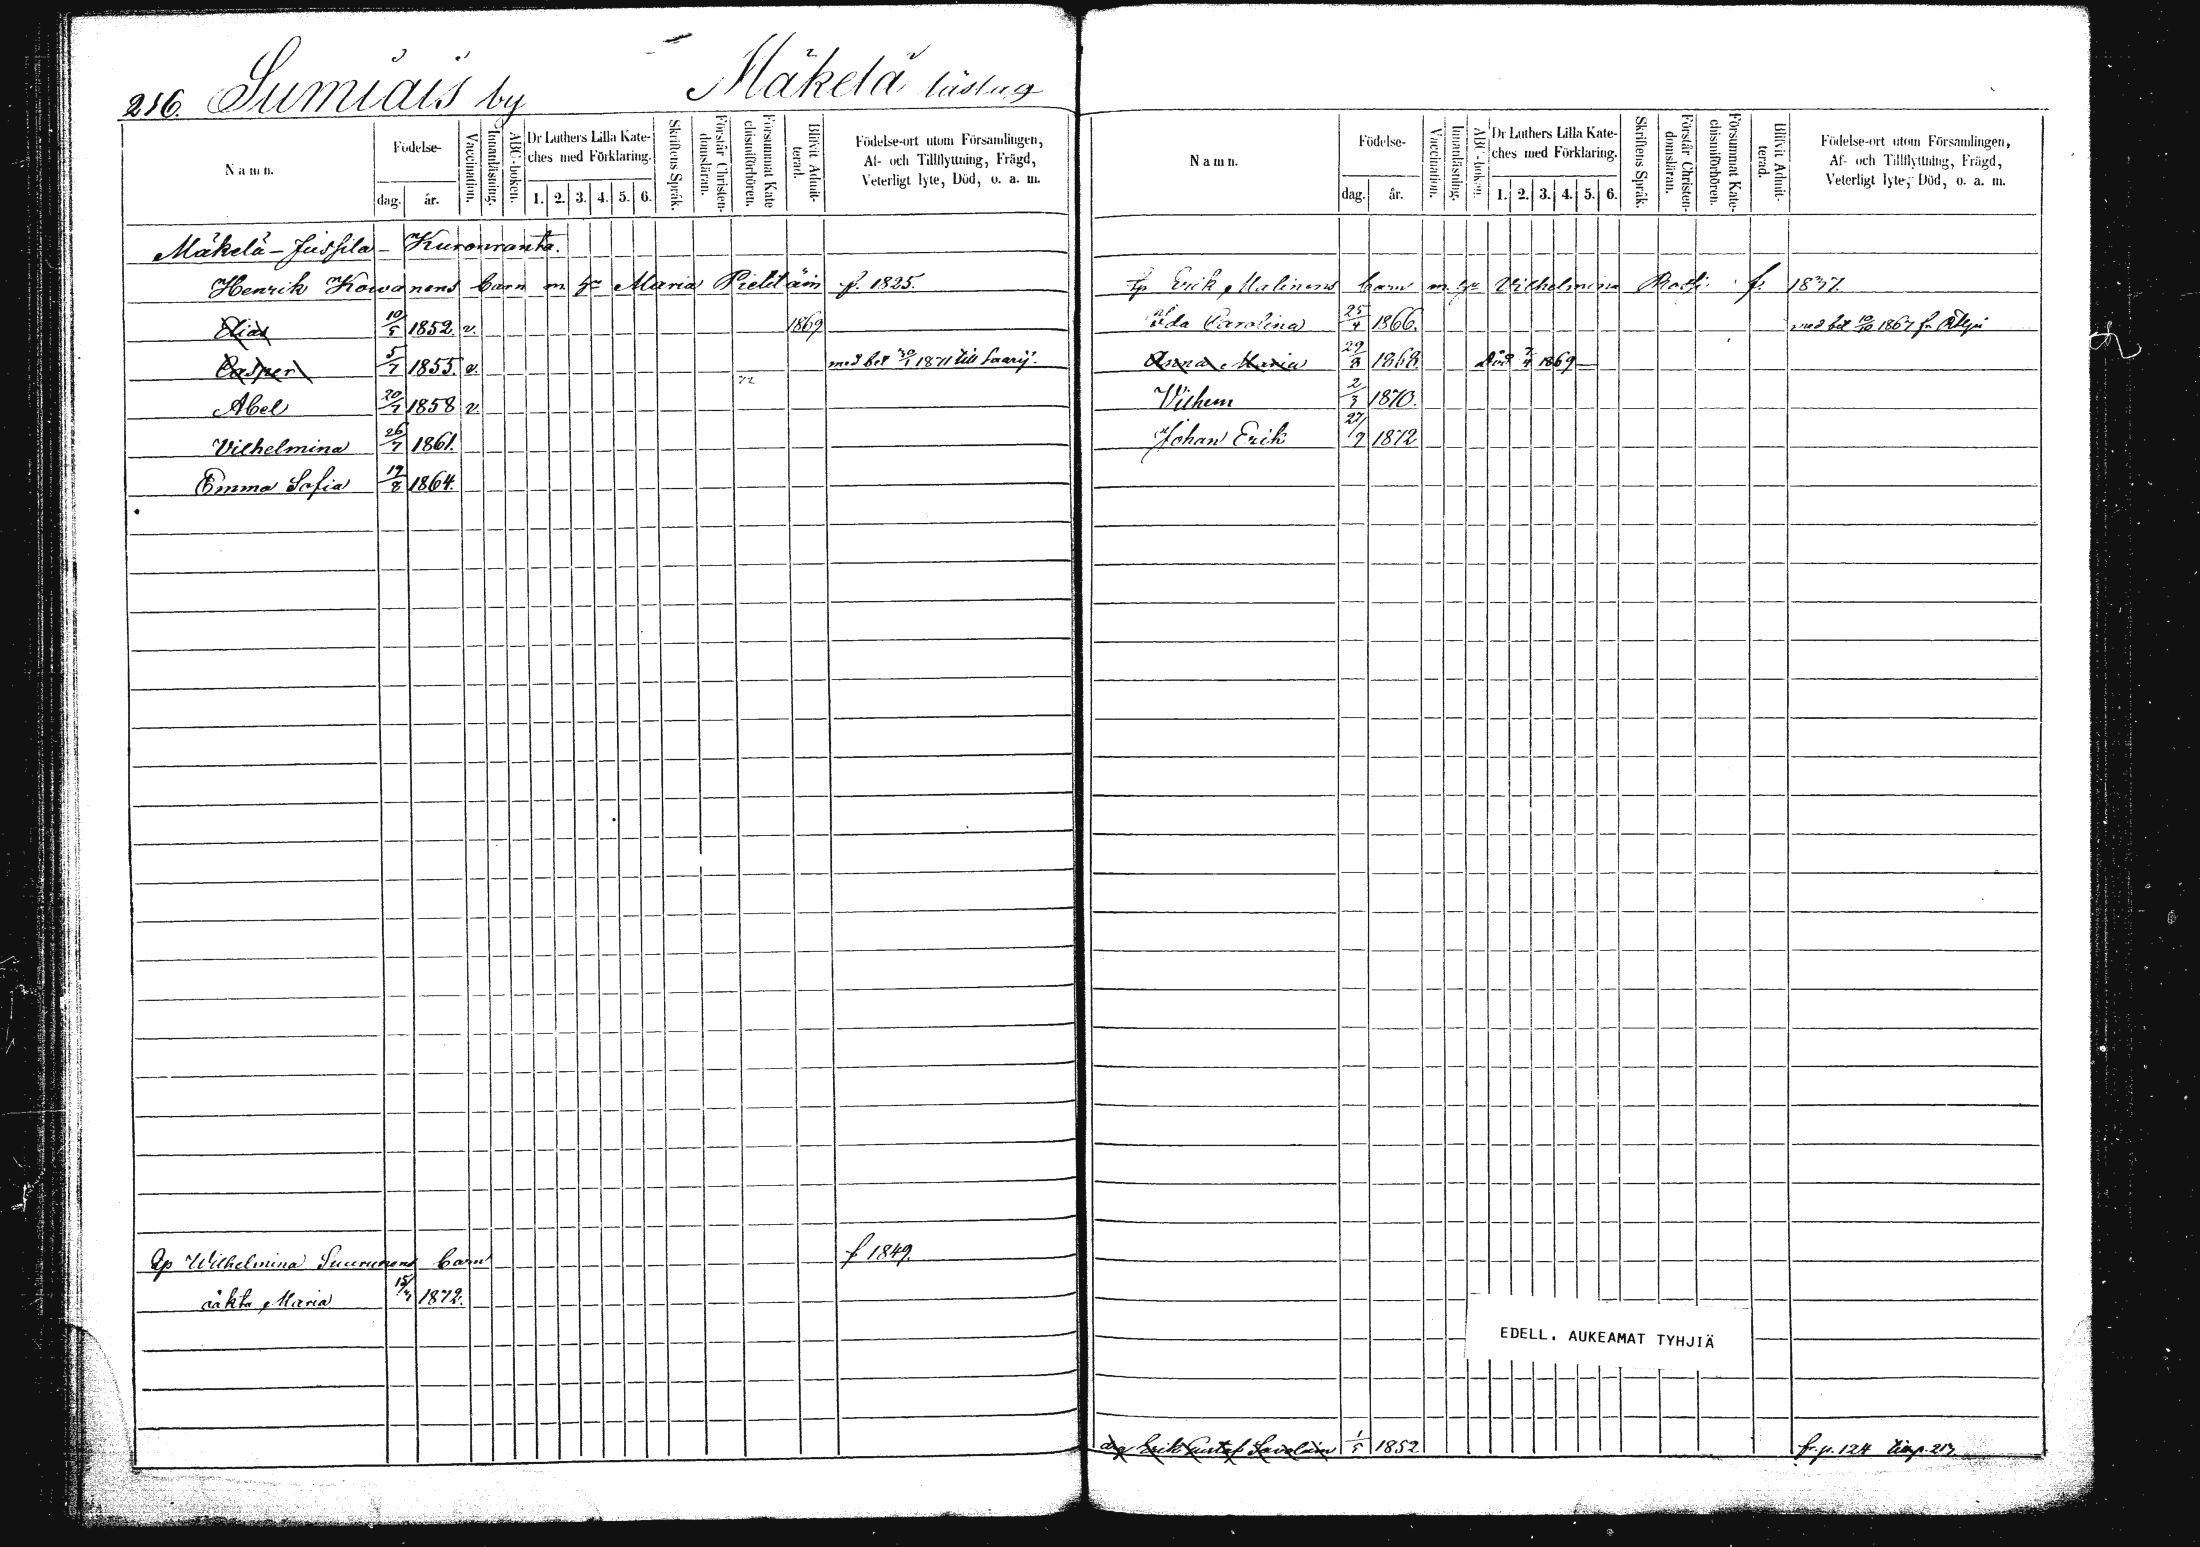 216. Sumiais by Mäkelä
Namn.
Födelse-
dag. år.
Vaccination.
Innanläsning.
ABC-boken.
Dr Luthers Lilla Kate-
ches med Förklaring.
1. 2. 3. 4. 5. 6.
Skriftens Språk.
Förstår Christen-
domsläran.
Försummat Kate
chismiförhören.
Blifvit Admit-
terad.
Födelse-ort utom Församlingen,
Af- och Tillflyttning, Frägd,
Veterligt lyte, Död, o. a. m.
Mäkelä - Jussila - Kuronranta.
Henrik Kowanens barn m hu Maria Pielitäin f. 1825.
Elias 10/5 1852. v. 1869
Casper 5/7 1855. v. med bet 30/1 1871 till Saarij.
72
Abel 20/7 1858 v
Vilhelmina 26/7 1861.
Emma Sofia 19/8 1864.
Wilhelmina Suurunens barn f 1849.
oäkta Maria 15/4 1872.
Namn.
Födelse-
dag. år.
Vaccination.
Innanläsning.
ABC-boken.
Dr Luthers Lilla Kate-
ches med Förklaring.
1. 2. 3. 4. 5. 6.
Skriftens Språk.
Förstår Christen-
domsläran.
Försummat Kate-
chismiförhören.
Blifvit Admit-
terad.
Födelse-ort utom Församlingen,
Af- och Tillflyttning, Frägd,
Veterligt lyte, Död, o. a. m.
Erik Malinens barn m. hu Vilhelmina f. 1837.
Ida Carolina 25/4 1866. med bet 1867 fr
Anna Maria 29/3 1868. Död 1869
Vilhem 2/3 1870.
Johan Erik 27/9 1872
EDELL. AUKEAMAT TYHJIÄ
Erik Gustaf Savolain 1/5 1852 fr. p. 124 till p. 217